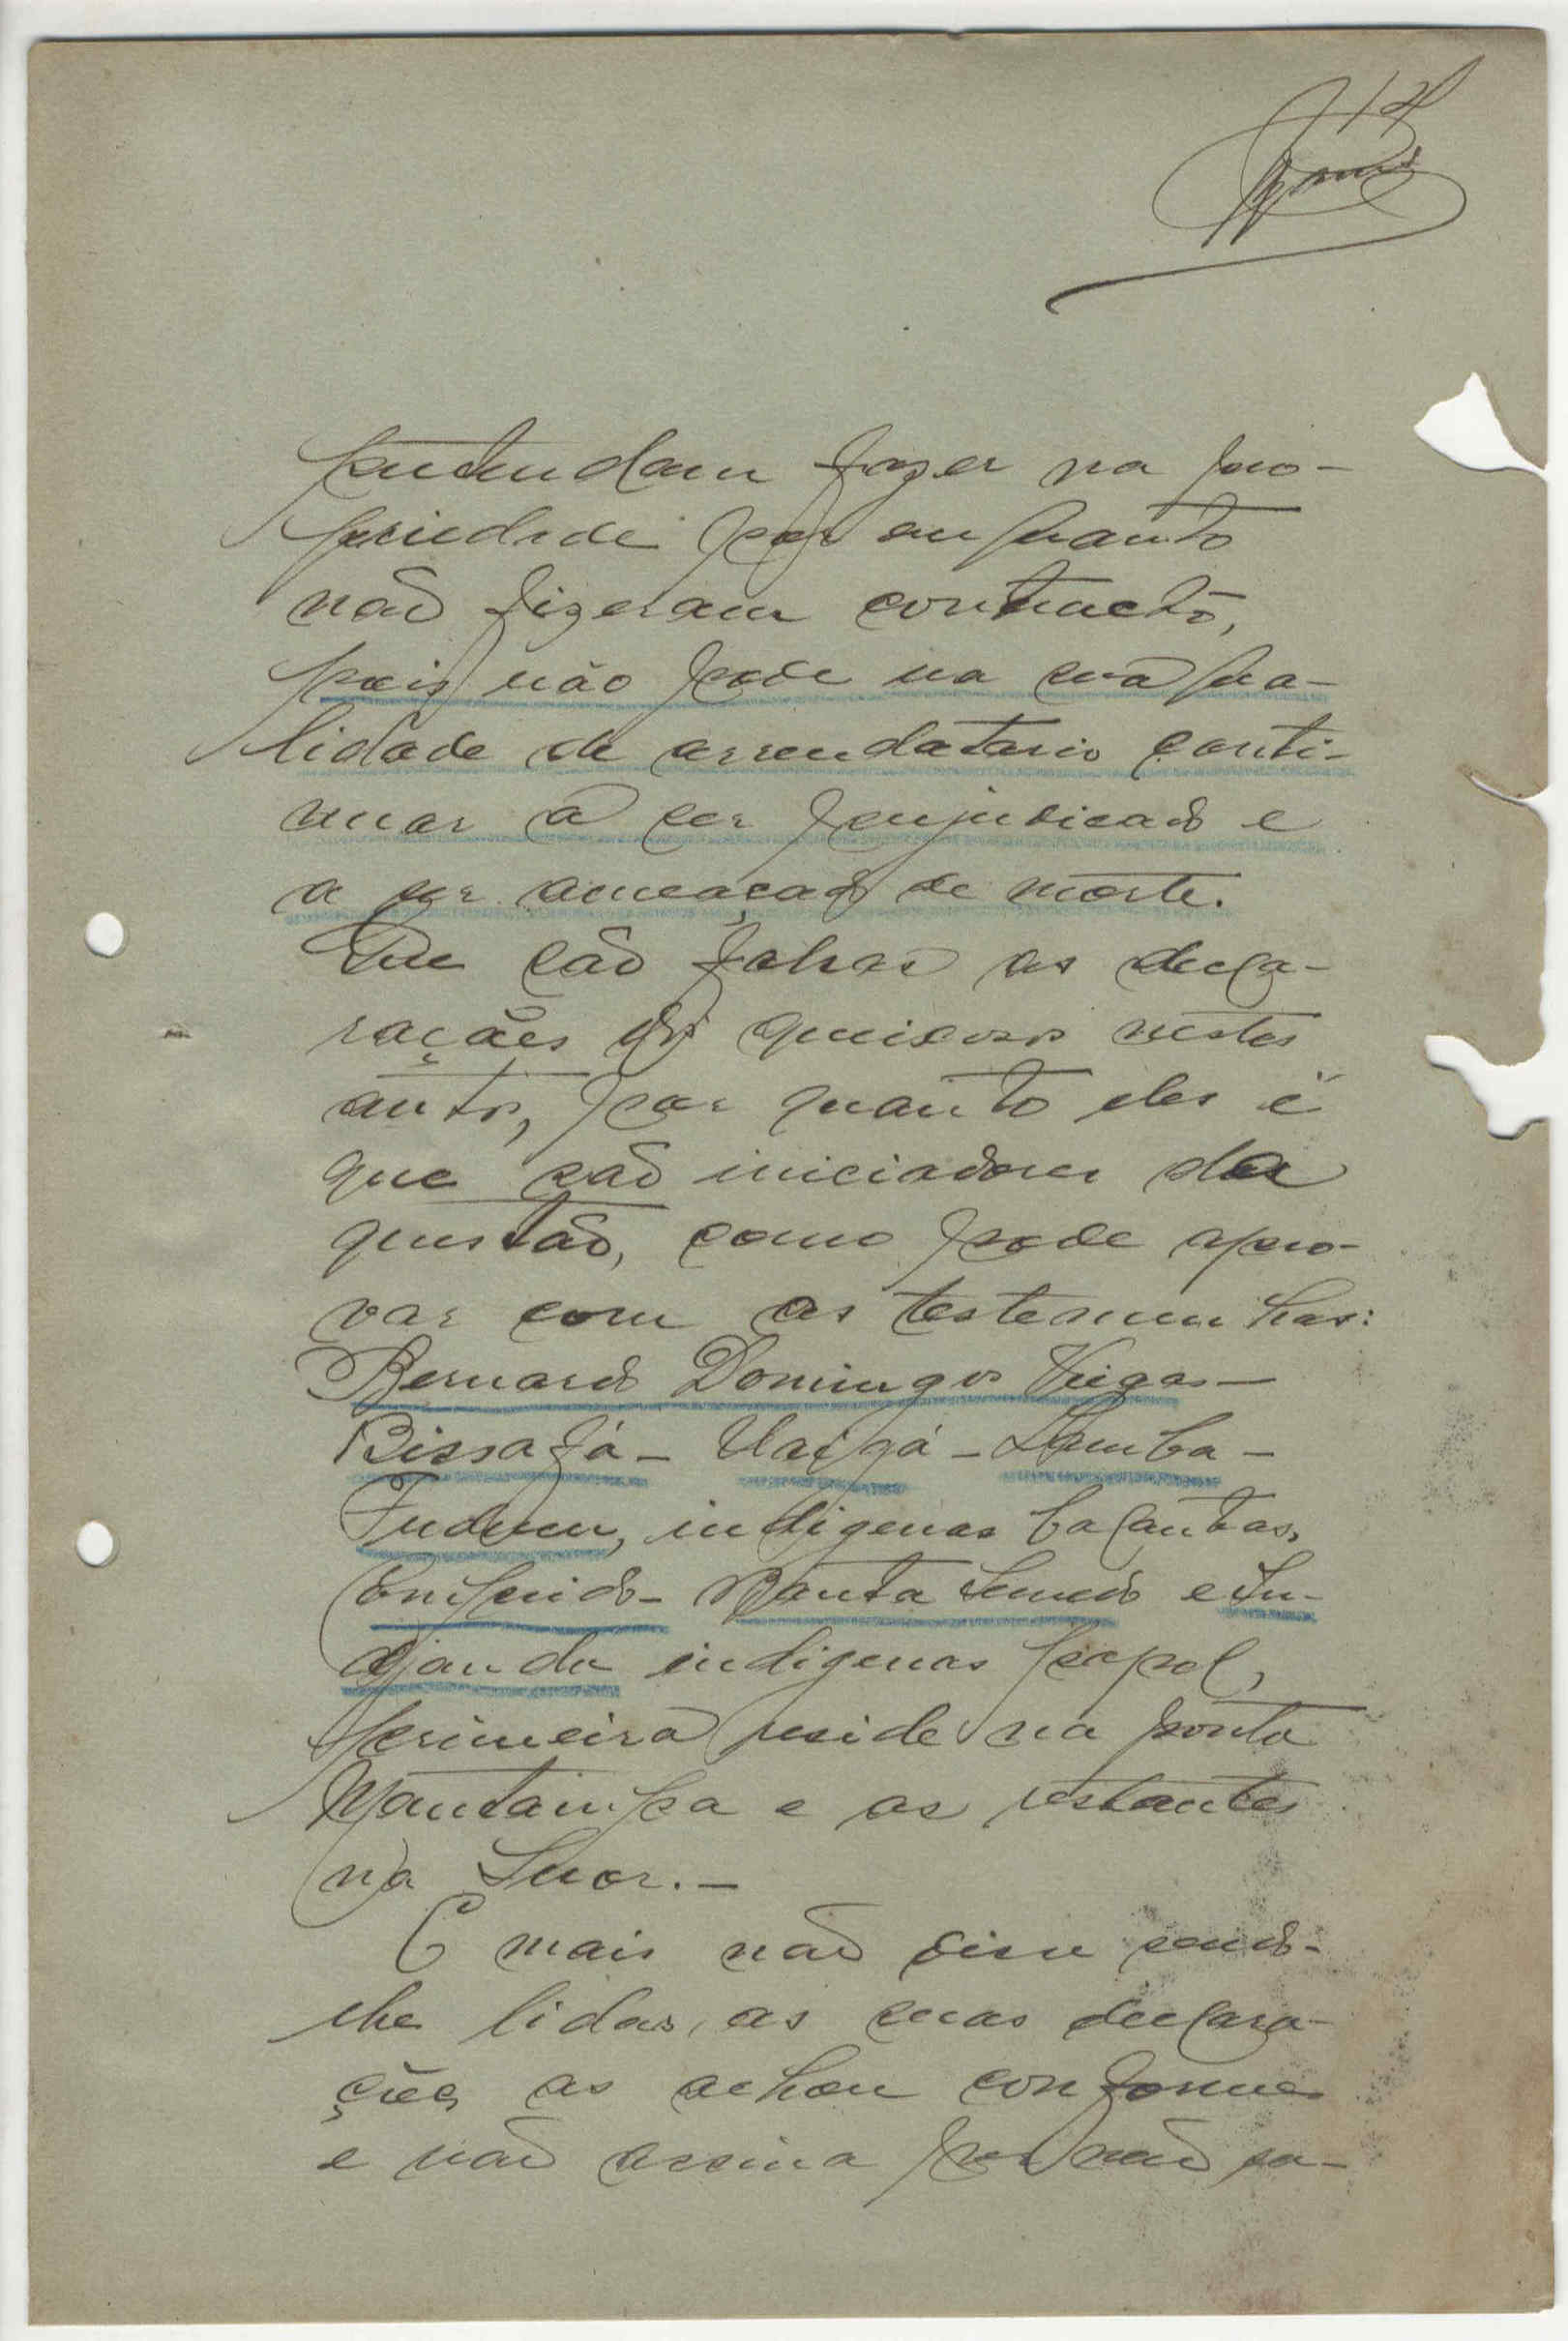 pretendam fazer na pro-
priedade por emquanto
não fizeram contracto,
pois não pode na sua qua-
lidade de arrendatario conti-
nuar a ser prejudicado e
a ser ameaçado de morte.
Que são falsas as decla-
rações dos queixosos nestes
autos, por quanto eles é
que são iniciadores da
questão, como pode apro-
var com as testemunhas:
Bernardo Domingos Viegas -
Bissafá - - Lamba -
indigenas balantas,
- e
indigenas papel,
primeira reside na ponta
e as restantes
na .-
E mais não disse sendo-
lhe lidas, as suas declara-
ções as achou conformes
e não assina por não sa-